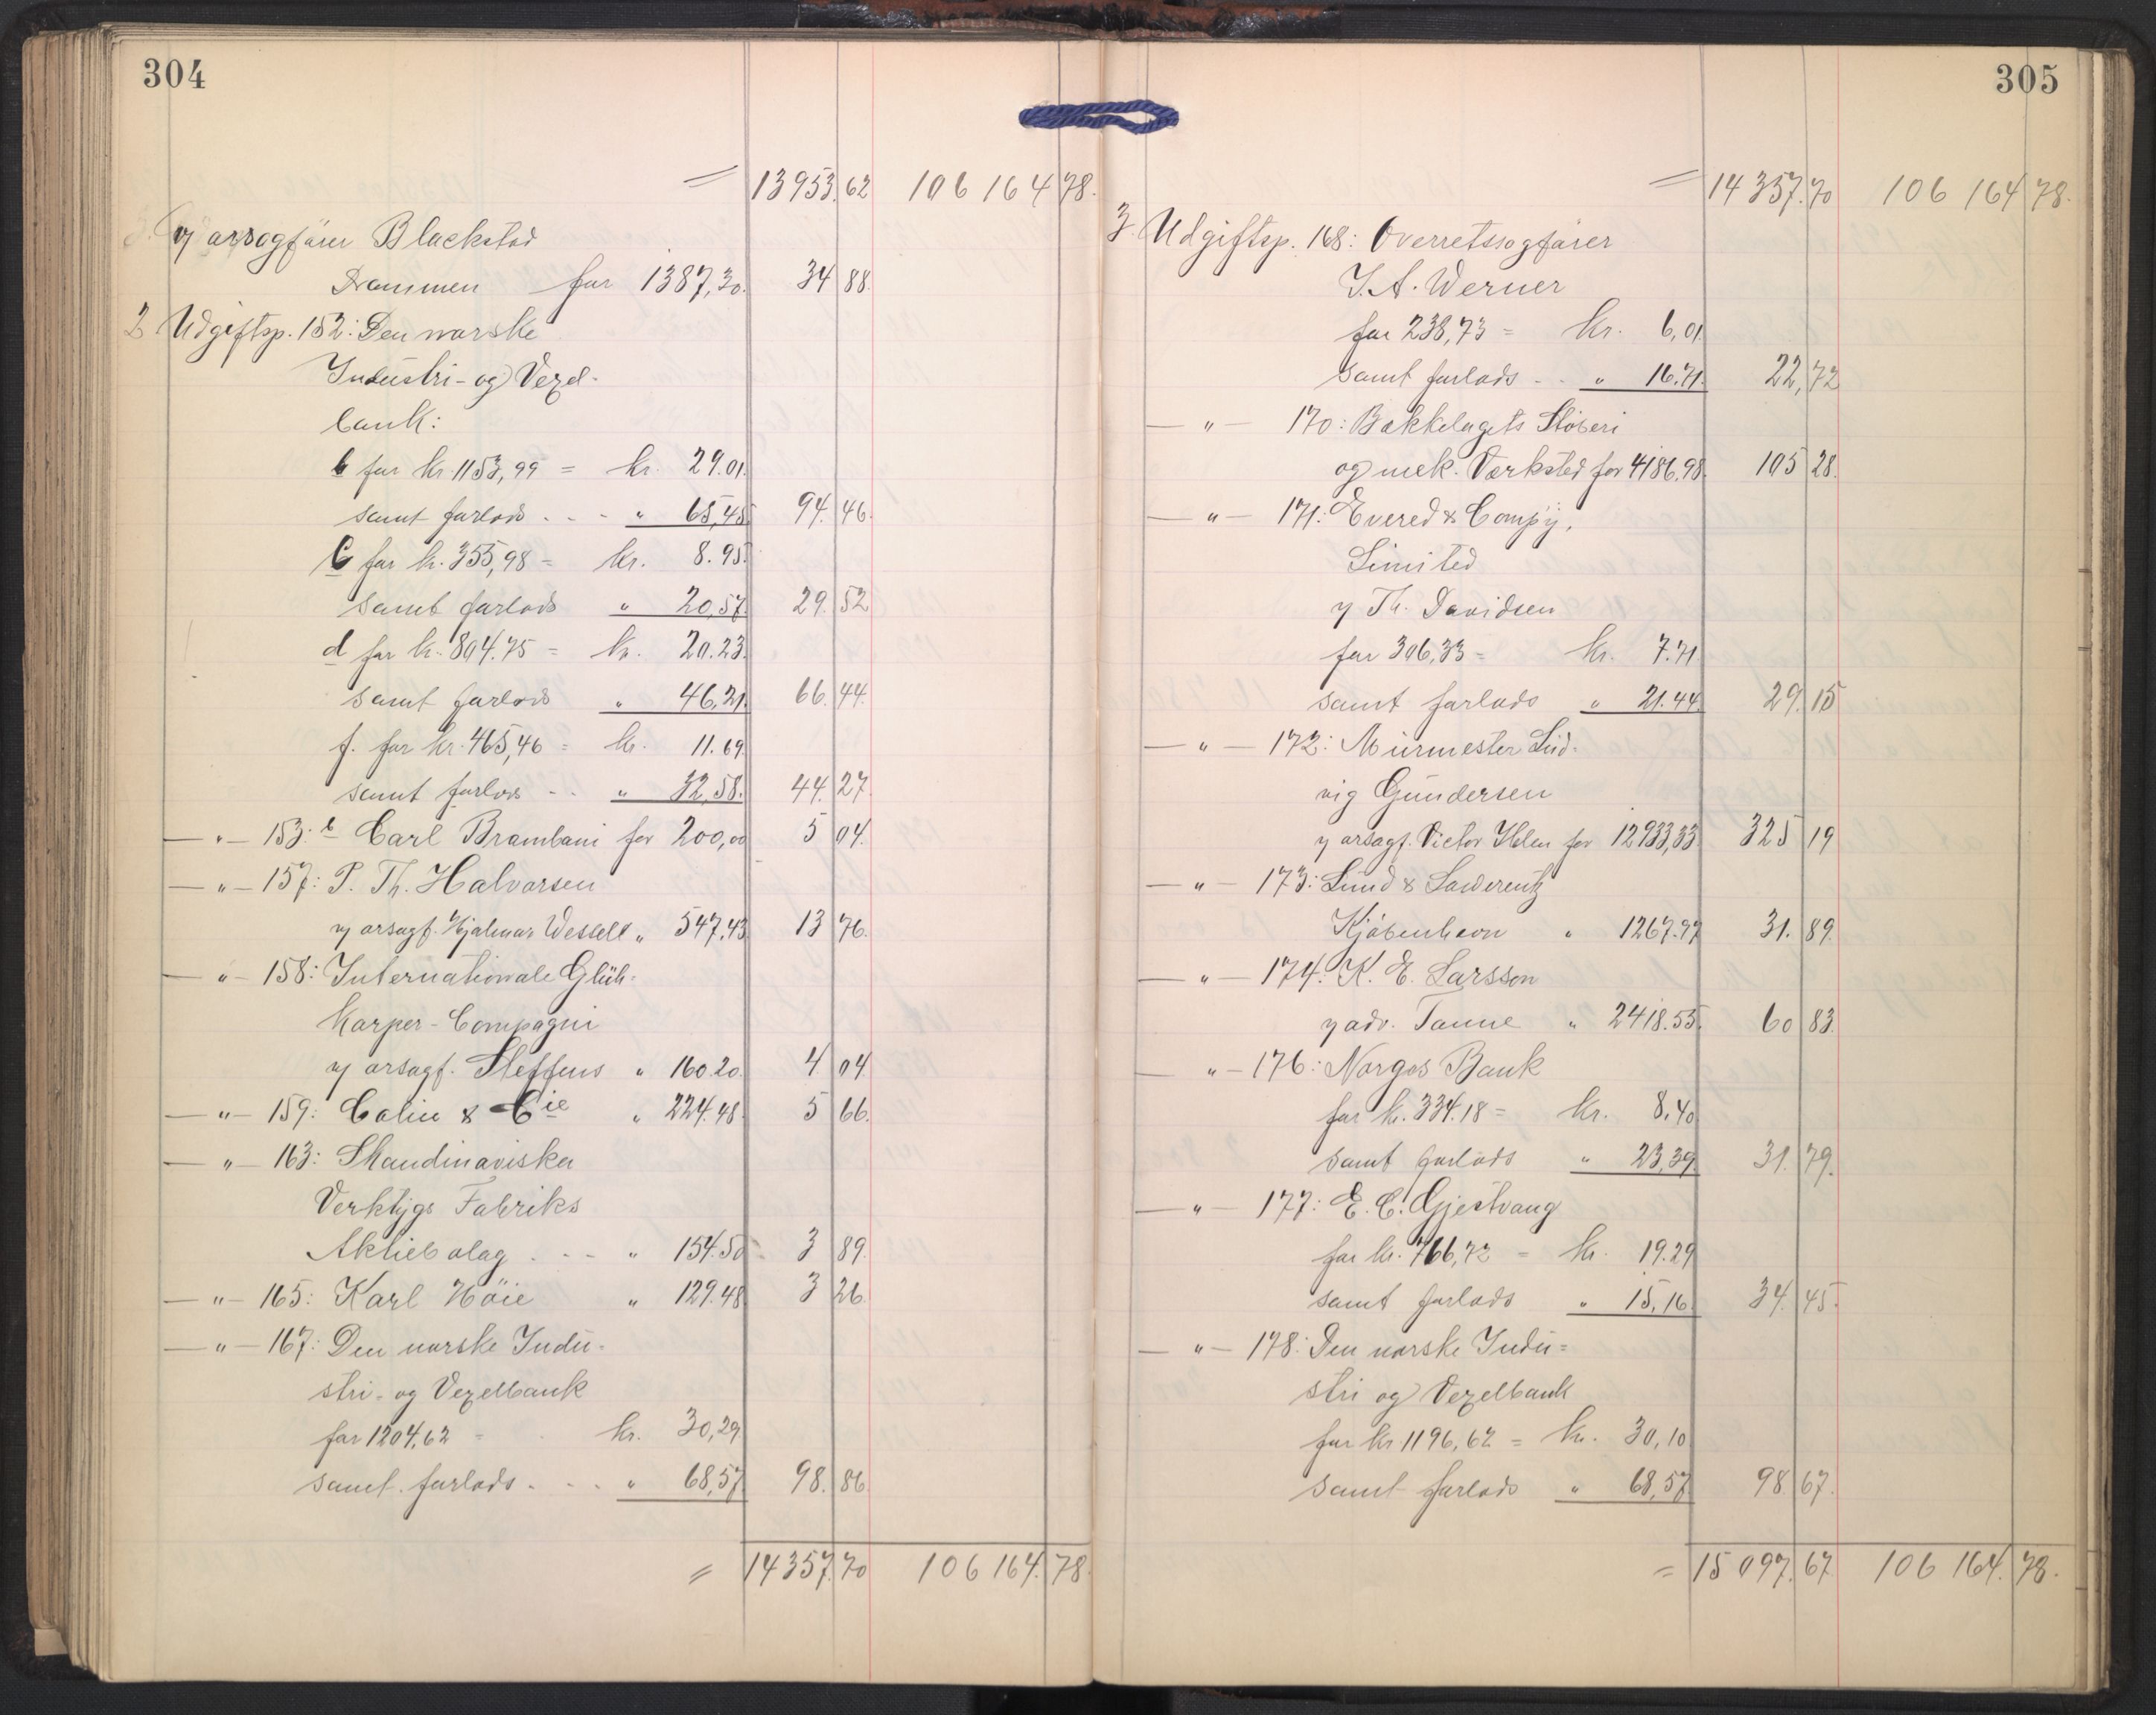 304
= 13953.62 106 164 78.
3. v/ orsagfører Blackstad
Drammen for 1387,30. 34 88.
3 Udgiftsp. 152: Den norske
Industri- og Vexel-
bank:
b for kr. 1153,99 = kr. 29.01.
samt forlods . . - " 65,45. 94. 46.
c for kr. 355,98 = kr. 8.95.
samt forlods " 20,57. 29. 52
d for kr. 804.75 = kr. 20.23.
samt forlods " 46,21. 66. 44.
f. for kr. 465,46 = kr. 11.69.
samt forlods - - " 32,58. 44. 27.
— " — 153: b Carl Brambani for 200,00 5 04.
— " — 157: P. Th. Halvorsen
v/ orsagf. Hjalmar Wessel " 547,43. 13 76.
— " — 158: Internationale Glüh-
körper-Compagni
v/ orsagf. Steffens " 160.20. 4 04.
— " — 159: Colin & Cie " 224.48. 5 66.
— " — 163: Skandinaviska
Verktygs Fabriks
Aktiebolag . - - " 154.50 3 89.
— " — 165: Karl Höie " 129.48 3 26.
— " — 167: Den norske Indu-
stri- og Vexelbank
for 1204,62 = kr. 30,29.
samt forlods . - . " 68,57. 98. 86.
= 14357.70 106 164.78.
305
= 14357.70 106 164 78.
3. Udgiftsp. 168: Overretssagfører
J. A. Werner
for 238,73 = kr. 6,01.
samt forlods - . " 16.71. 22,72
— " — 170: Bækkelagets Støberi
og mek. Værksted for 4186.98. 105 28.
— " — 171: Evered & Compy,
Limited
v/ Th. Davidsen
for 306,33 = kr. 7.71.
samt forlods " 21.44. 29. 15
— " — 172: Murmester Lud-
vig Gundersen
v/ orsagf. Victor Holen for 12933,33. 325 19
— " — 173: Lund & Lawerentz
Kjøbenhavn " 1267.97 31. 89.
— " — 174: K. E. Larsson
v/ adv. Tanne " 2418.55. 60 83.
— " — 176: Norges Bank
for kr. 334.18 = kr. 8,40
samt forlods " 23,39. 31. 79.
— " — 177: E. C. Gjestvang
for kr. 766,72 = kr. 19.29
samt forlods " 15,16. 34. 45.
— " — 178: Den norske Indu-
stri og Vexelbank
for kr 1196,62 = kr. 30,10
samt forlods " 68,57 98. 67.
= 15 097.67 106 164.78.